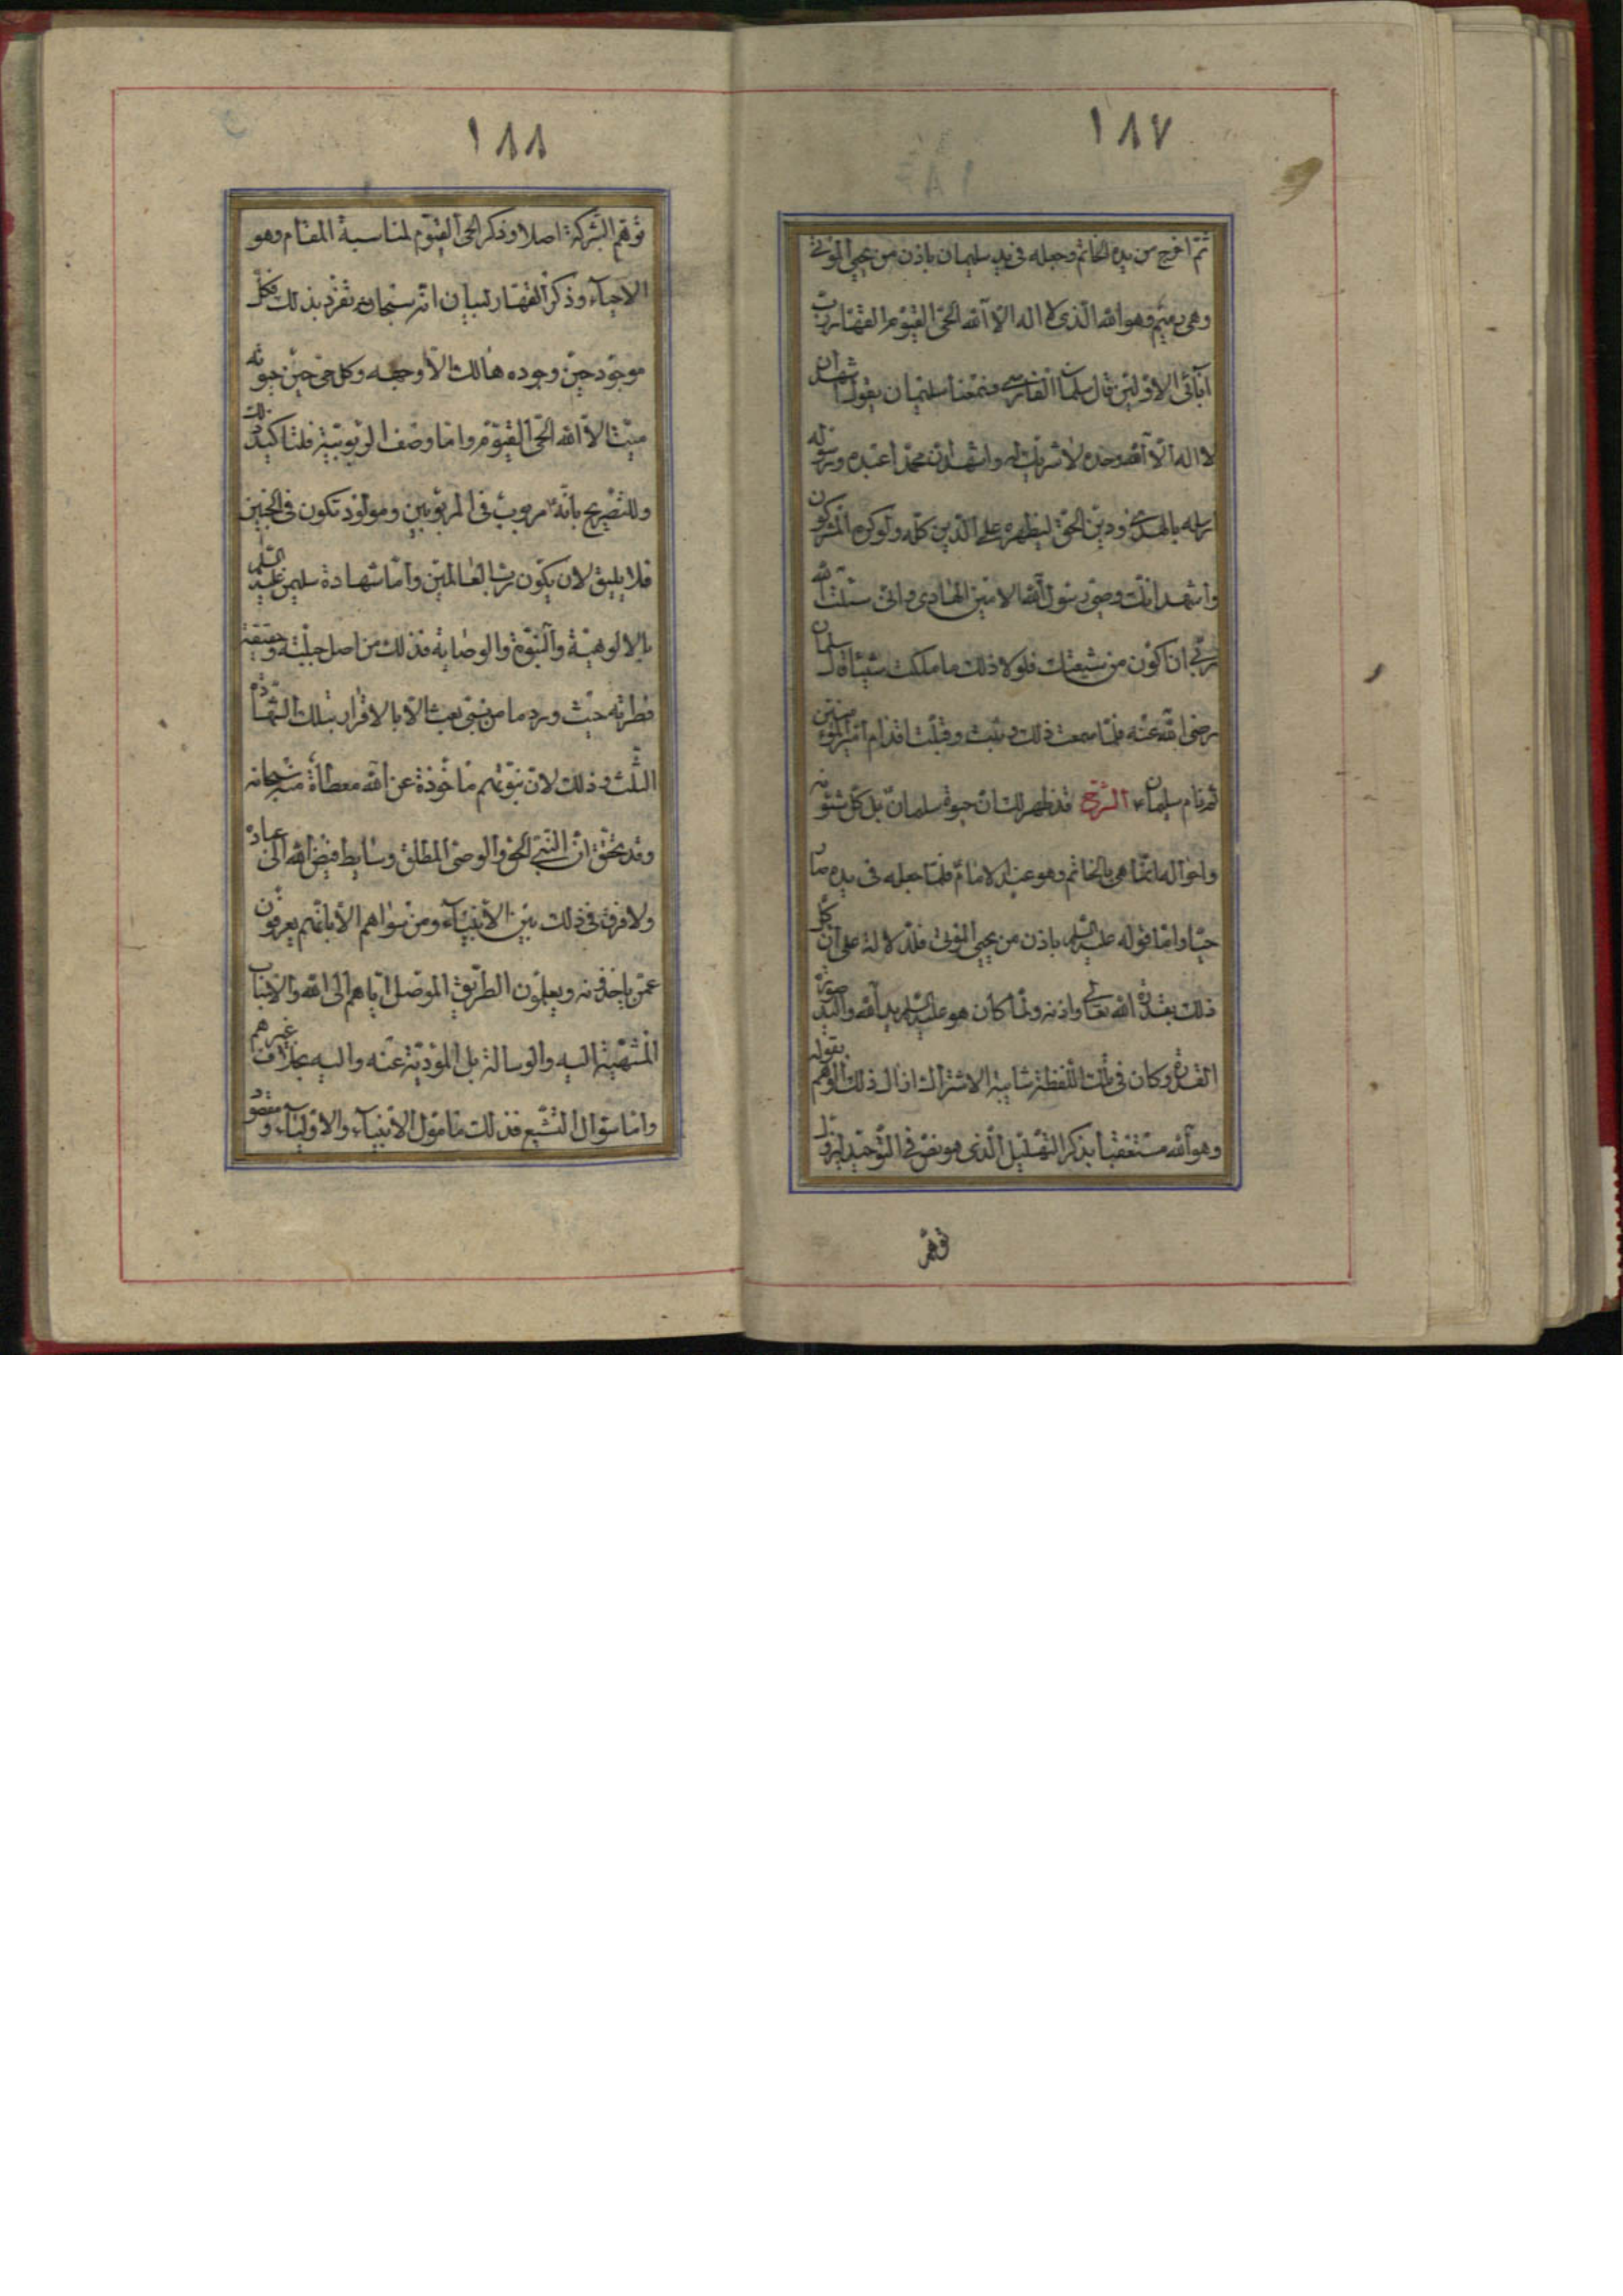 ١٨٧
ثم اخرج من يده الخاتم وجعله فى يد سليمان باذن من يحيى الموتى
وهى رميم وهو الله الذى لا اله الا الله الحى القيوم القهار رب
آبائى الاولين قال سلمان الفارسى فسمعنا سليمان يقول اشهد ان
لا اله الا الله وحده لا شريك له واشهد ان محمدا عبده ورسوله
ارسله بالهدى ودين الحق ليظهره على الدين كله ولو كره المشركون
واشهد انك وصى رسول الله الامين الهادى وانى سئلت الله
ربى ان اكون من شيعتك فلولا ذلك ما ملكت شيئا قال سلمان
رضى الله عنه فلما سمعت ذلك وثبت وقبلت اقدام امير المؤمنين
ثم نام سليمان ع الشرح قد ظهر لك ان حيوة سلمان بل كل شئونه
واحواله انما هى بالخاتم وهو عند الامام فلما جعله فى يده صار
حيا واما قوله عليه السلم باذن من يحيى الموتى فلدلالة على ان كل
ذلك بقدرة الله تعالى واذنه ولما كان هو عليه السلم يد الله واليد صورة
القدرة وكان فى تلك اللفظة شايبة الاشتراك ازال ذلك الوهم بقوله
وهو الله مستعقبا بذكر التهليل الذى هو نص فى التوحيد ليزول
توهم
١٨٨
توهم الشركة اصلا وذكر الحى القيوم لمناسبة المقام وهو
الاحياء وذكر القهار لبيان انه سبحانه تفرد بذلك فكل
موجود حين وجوده هالك الا وجهه وكل حى حين حيوته
ميت الا الله الحى القيوم واما وصف الربوبية فلتاكيد ذلك
وللتصريح بانه مربوب فى المربوبين ومولود تكون فى الجنين
فلا يليق لان يكون رب العالمين واما شهادة سليمن عليه السلم
بالالوهية والنبوة والوصاية فذلك من اصل جبلته وحقيقة
فطرته حيث ورد ما من نبى بعث الا بالاقرار بتلك الشهادة
الثلث وذلك لان نبوتهم ماخوذة عن الله معطاة منه سبحانه
وقد تحقق ان النبى الحق والوصى المطلق وسايط فيض الله الى عباده
ولا فرق فى ذلك بين الانبياء ومن سواهم الا بانهم يعرفون
عمن ياخذونه ويعلمون الطريق الموصل اياهم الى الله والاسباب
المنتهية اليه والوسالة بل المؤدية عنه واليه بخلاف غيرهم
واما سؤال التشيع فذلك مامول الانبياء والاولياء ومقصود